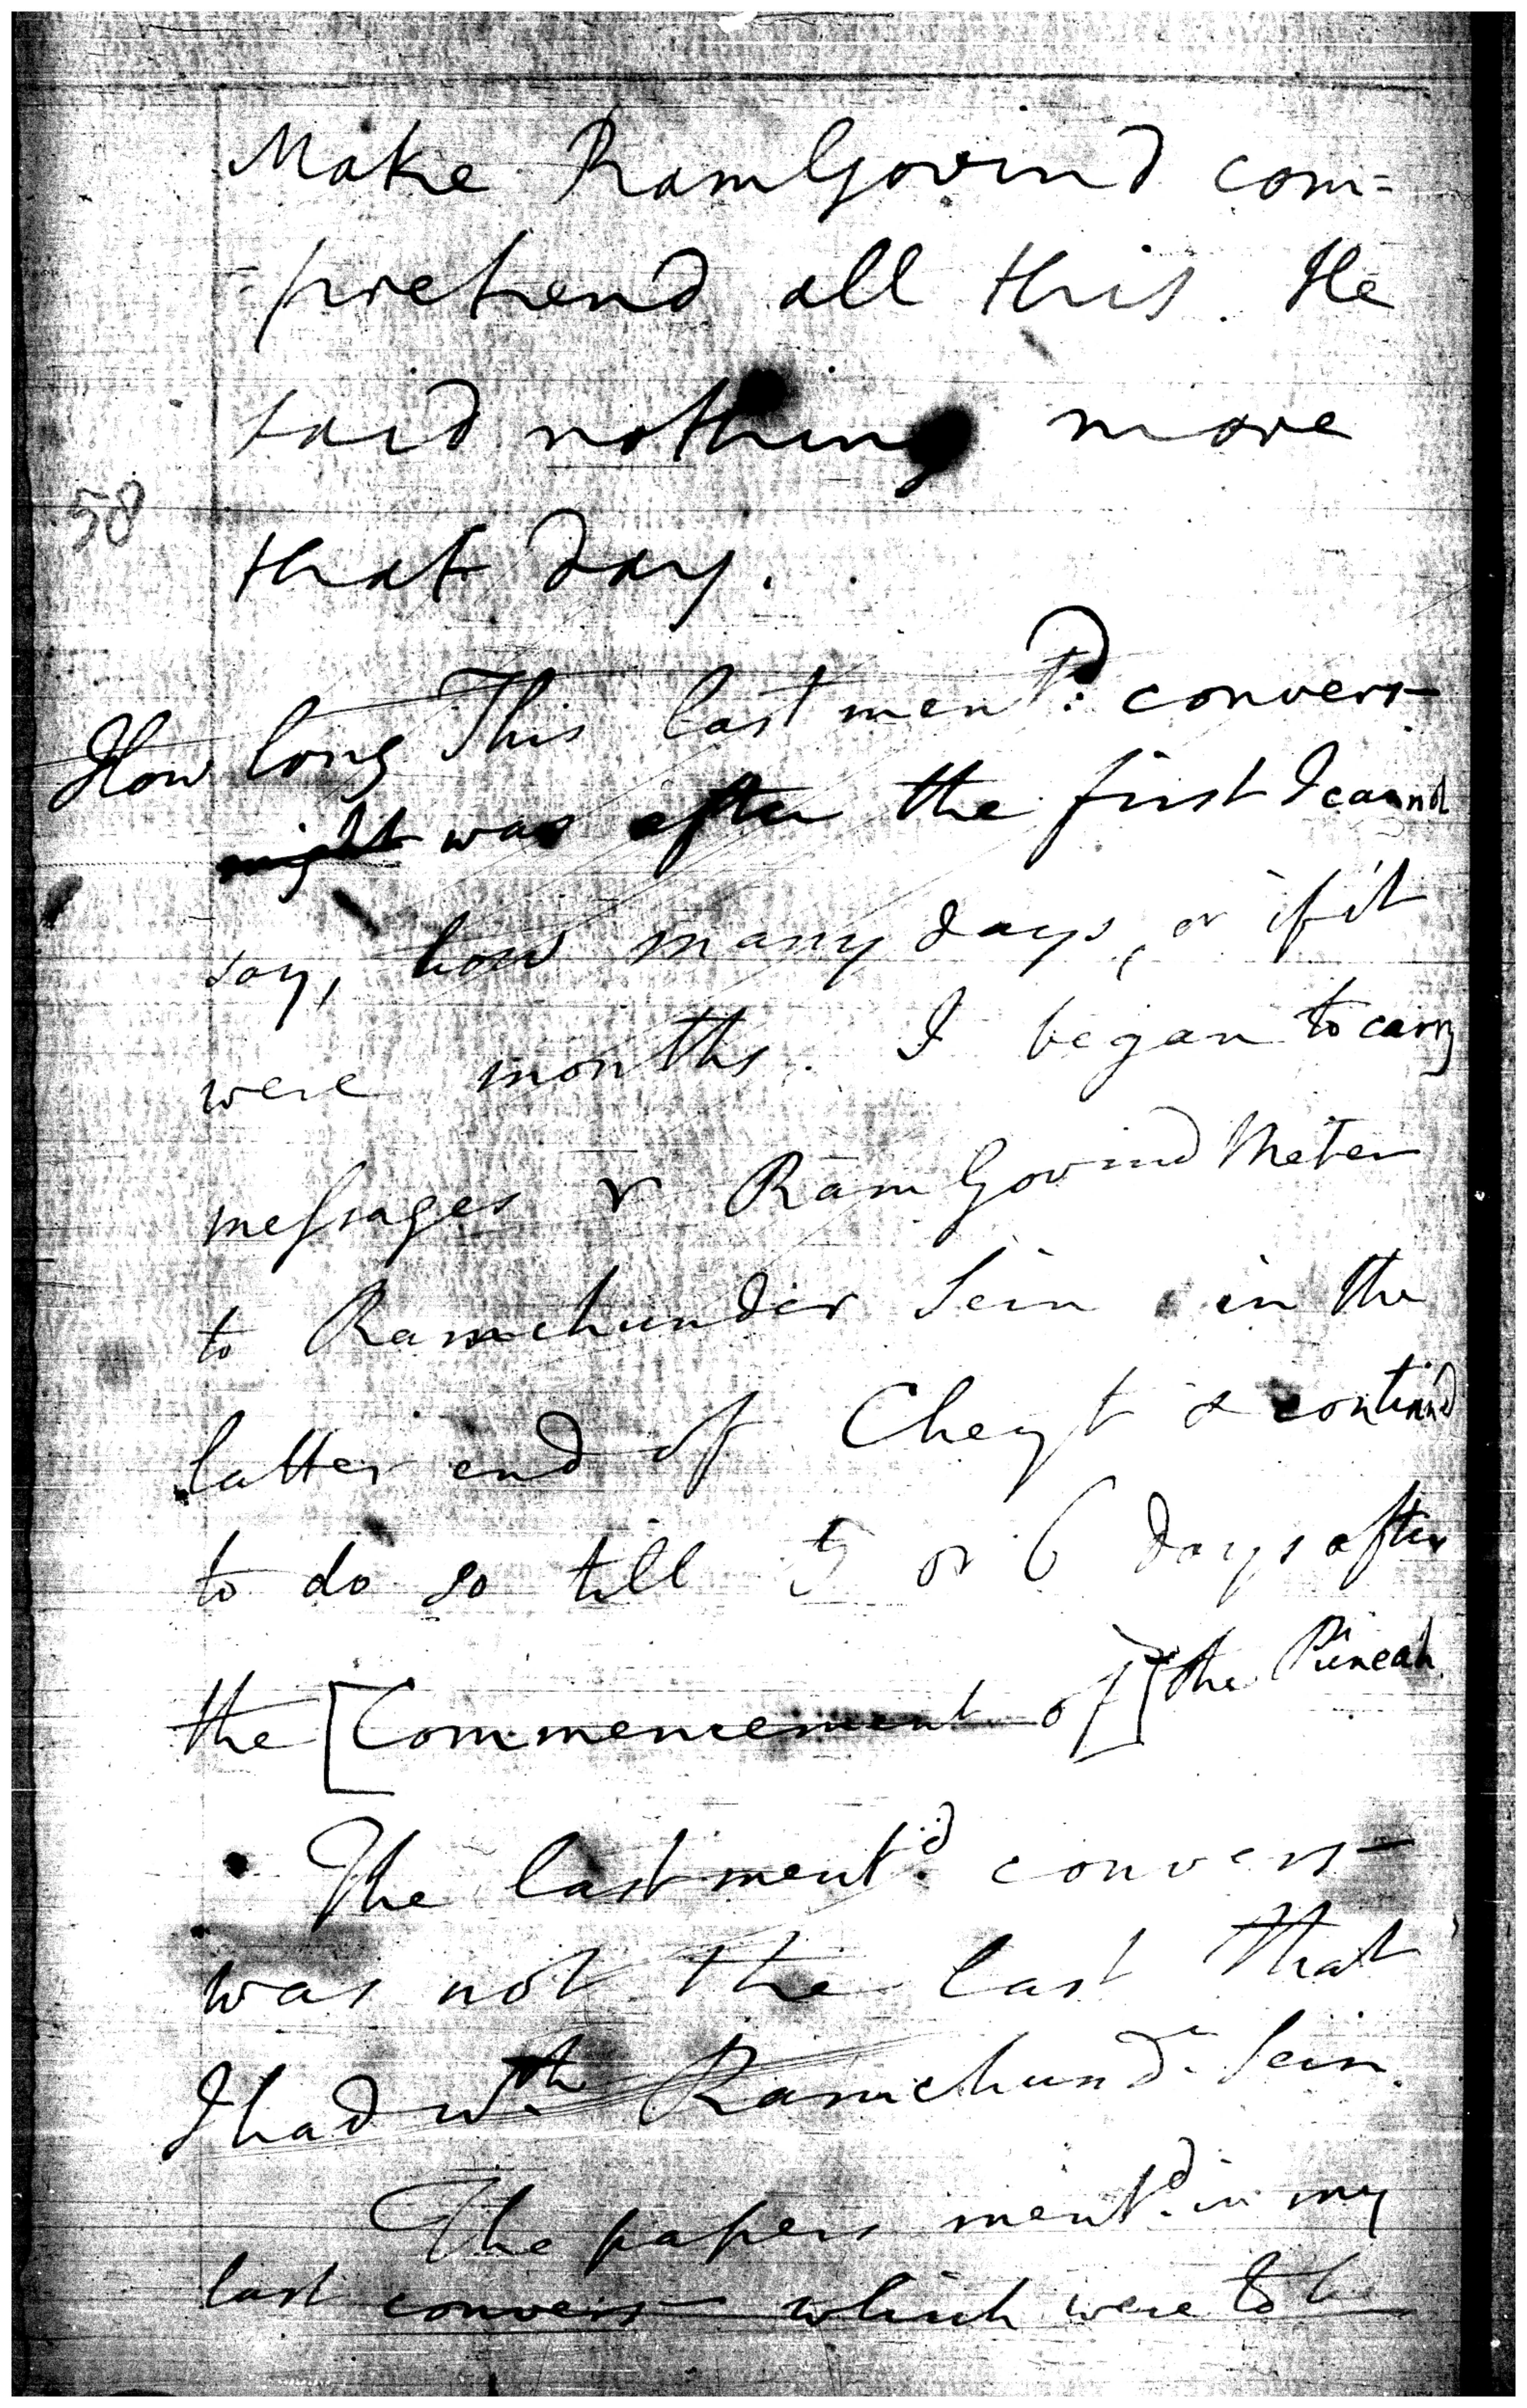 Make RamGovind com=
=prehend all this. He
said nothing more
58
that day.
How long This last ment.d convers
might was after the first I cannot
say, how many days, or if it
were months. I began to carry
messages & RamGovind Meter
to Ramchunder Sein in the
latter end of Cheyt & continued
to do so till 5 or 6 days after
the [Commencement of] the Puneah
The last ment.d convers
was not the last that
I had w.th Ramchund.r Sein.
The papers ment.d in my
last convers which were to be